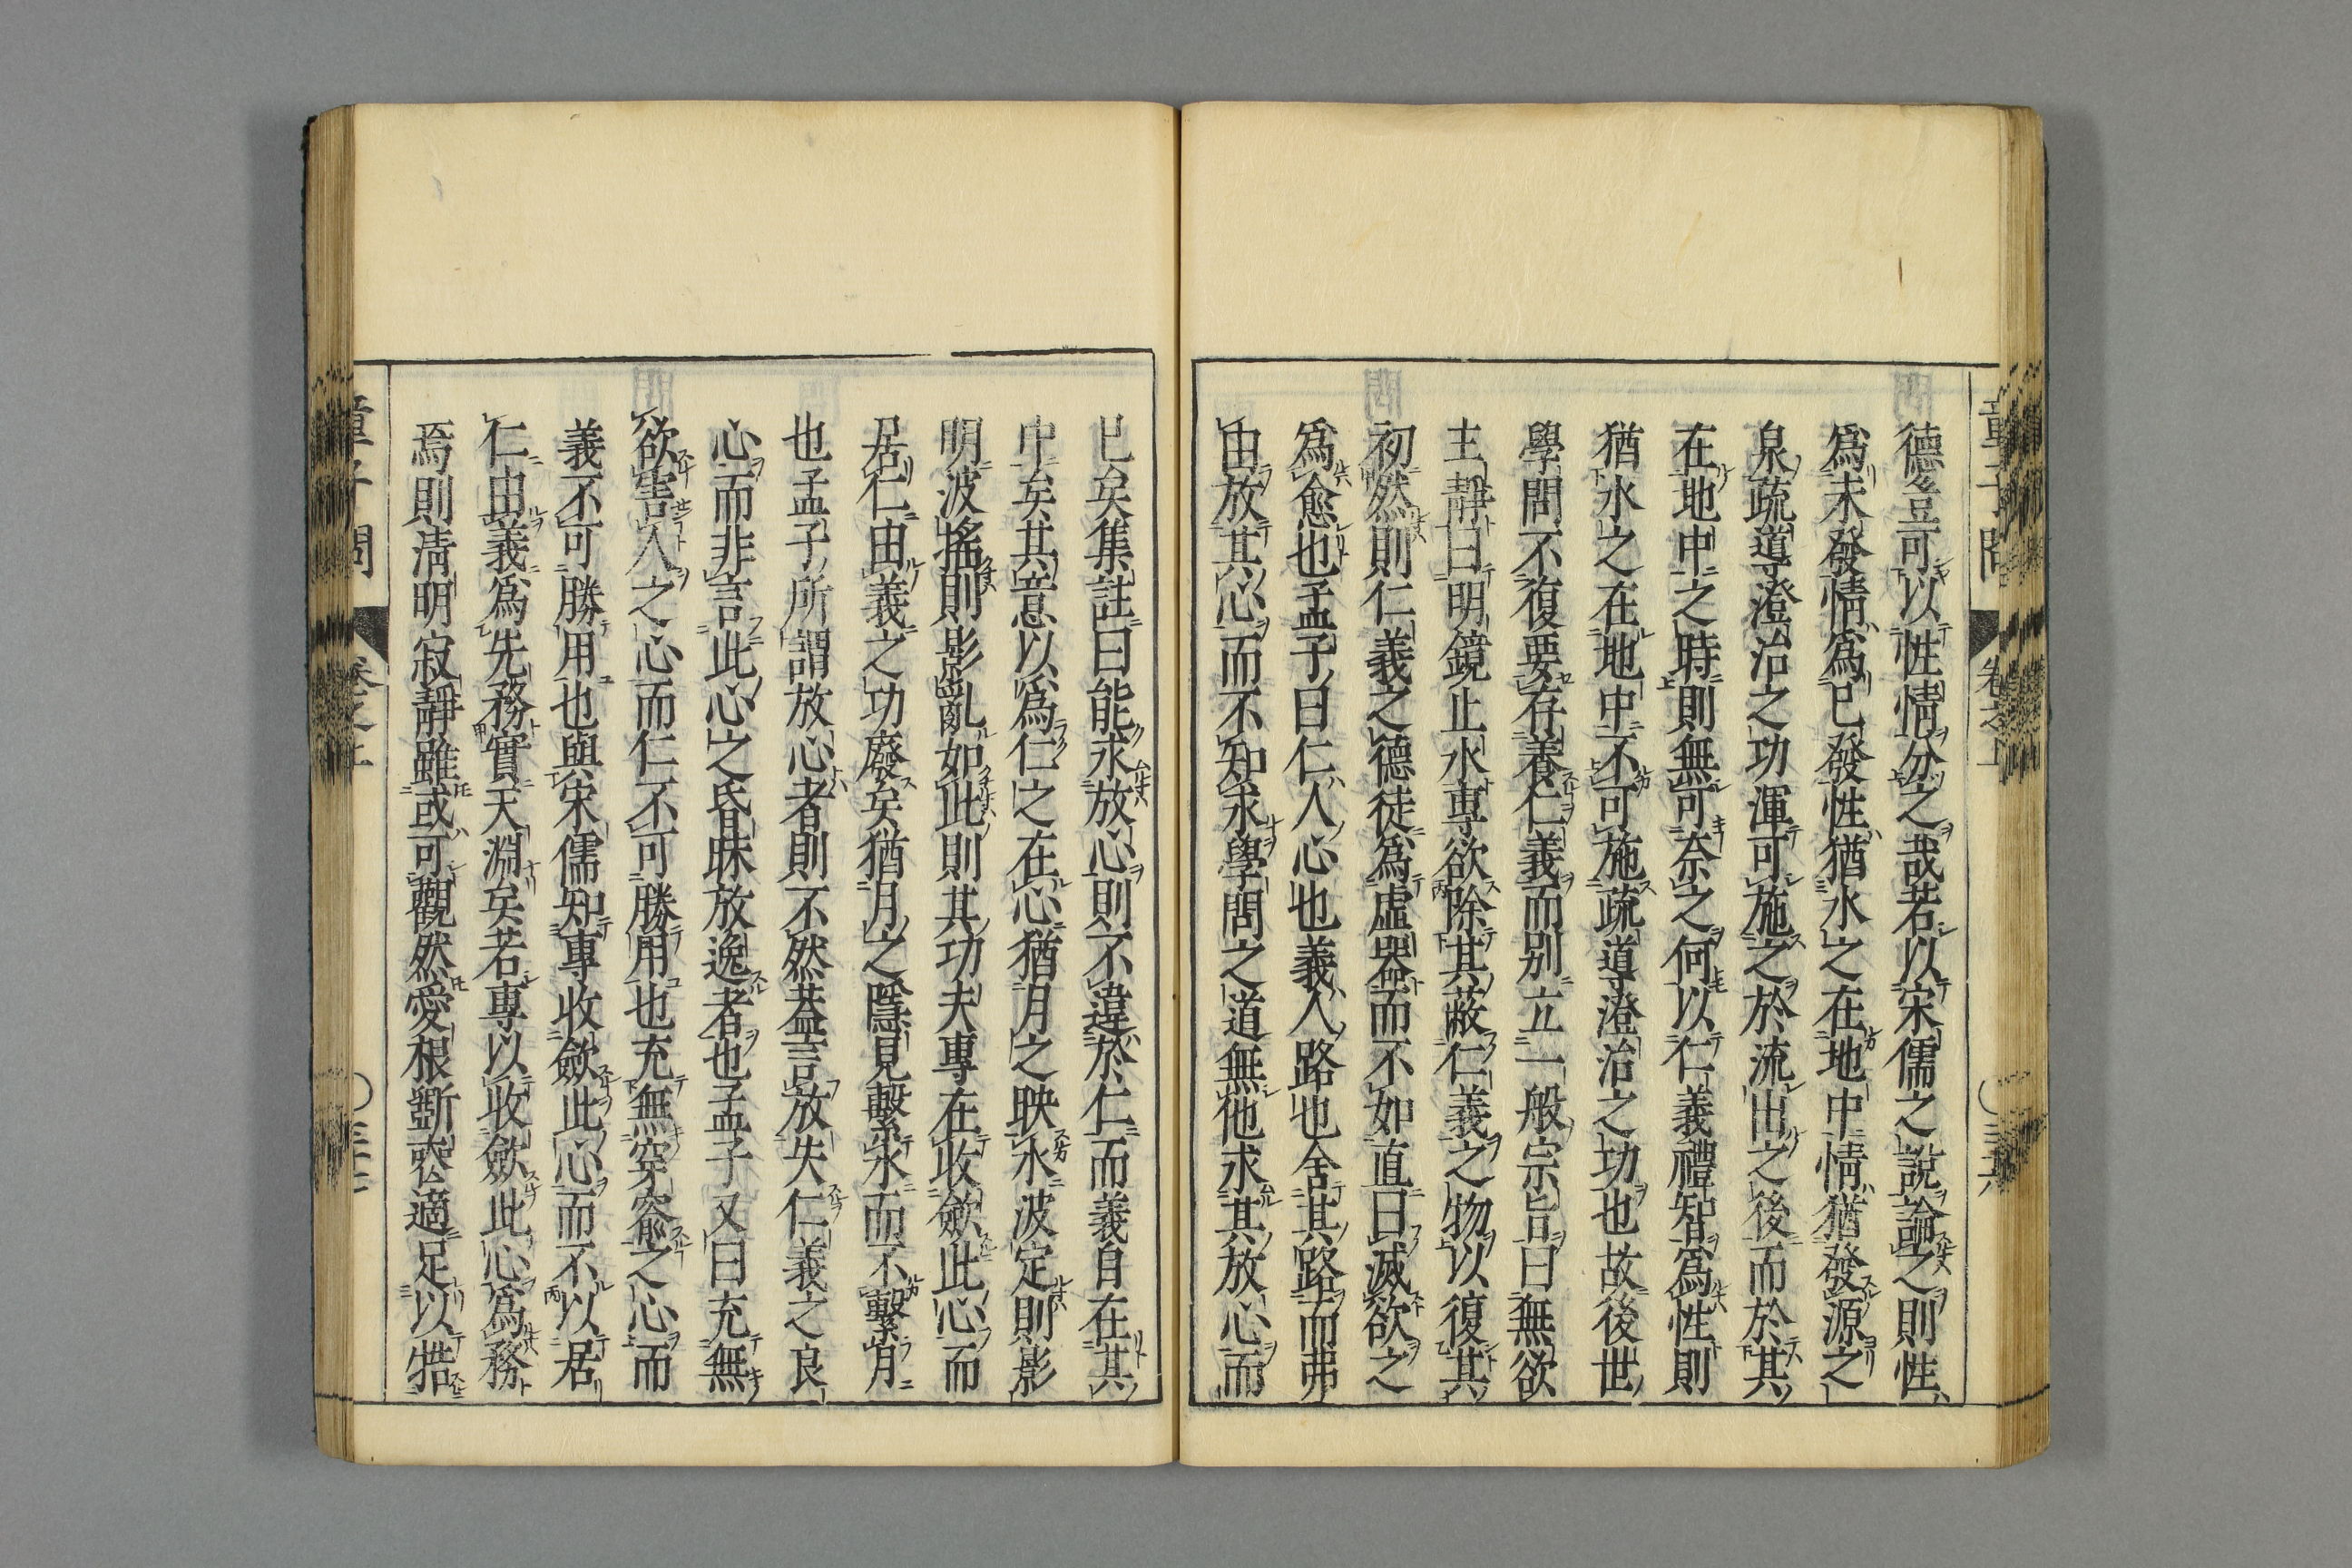 童子問 卷之上 ○三六
德豈可以性情分之哉若以宋儒之說論之則性
爲未發情爲已發性猶水之在地中情猶發源之
泉疏導澄治之功渾可施之於流出之後而於其
在地中之時則無可奈之何以仁義禮智爲性則
猶水之在地中不可施疏導澄治之功也故後世
學問不復要存養仁義而別立一般宗旨曰無欲
主靜曰明鏡止水專欲除其蔽仁義之物以復其
初然則仁義之德徒爲虛器而不如直曰滅欲之
爲愈也孟子曰仁人心也義人路也舍其路而弗
由放其心而不知求學問之道無他求其放心而
已矣集註曰能求放心則不違於仁而義自在其
中矣其意以爲仁之在心猶月之映水波定則影
明波搖則影亂如此則其功夫專在收斂此心而
居仁由義之功廢矣猶月之隱見繫水而不繫月
也孟子所謂放心者則不然蓋言放失仁義之良
心而非言此心之昏昧放逸者也孟子又曰充無
欲害人之心而仁不可勝用也充無穿窬之心而
義不可勝用也與宋儒知專收斂此心而不以居
仁由義爲先務實天淵矣若專以收斂此心爲務
焉則淸明寂靜雖或可觀然愛根斷喪適足以牿
童子問 卷之上